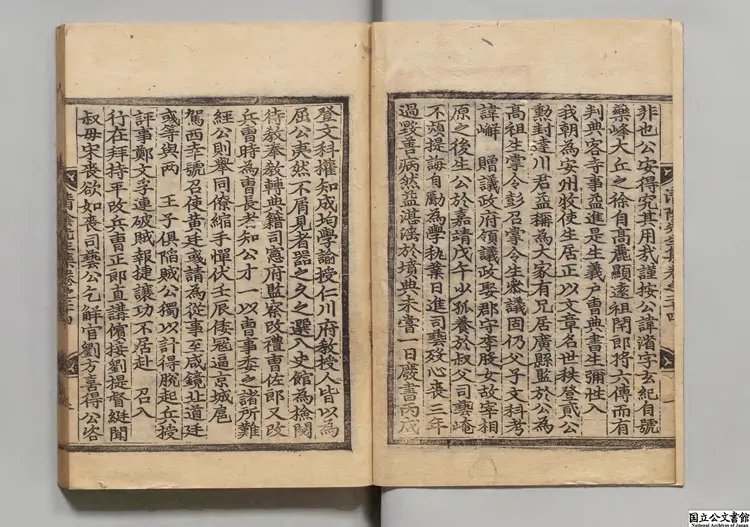 非也公安得究其用哉謹按公諱渻字玄紀自號
藥峰大丘之徐自高麗顯遠祖閈郎將六傳而有
判典客寺事益進是生義戶曹典書生彌性入
我朝為安州牧使生居正以文章名世
勳封達川君益稱為大家有兄居廣縣監於公為
高祖生掌令彭召掌令生參議固仍父子文科考
諱嶰 贈議政府領議政娶郡守李股女故宰相
原之後生公於嘉靖戊午以孤養於叔父司藝崦
不煩提誨自勵為學執業日進司藝歿心喪三年
過毀善病然益湛滛於墳典未嘗一日廢書丙戌
登文科權知成均學諭授仁川府教授人皆以為
屈公夷然不屑見者器之久之選入史館為檢閱
待教奉教轉典籍司憲府監察改禮曹佐郎又改
兵曹時為曹長者知公才一以曹事委之諸所難
經公則舉同僚縮手憚伏壬辰倭冦逼京城扈
駕西幸號召使黃廷彧請為從事至咸鏡北道廷
彧等與兩 王子俱陷賊公獨以計得脫起兵授
評事鄭文孚連破賊報捷讓功不居赴 召入
行在拜持平改兵曹正郎直講儐接劉提督綎聞
叔母宋喪欲如喪司藝公乞解官劉方喜得公咨
国立公文書館
National Archives of Japan